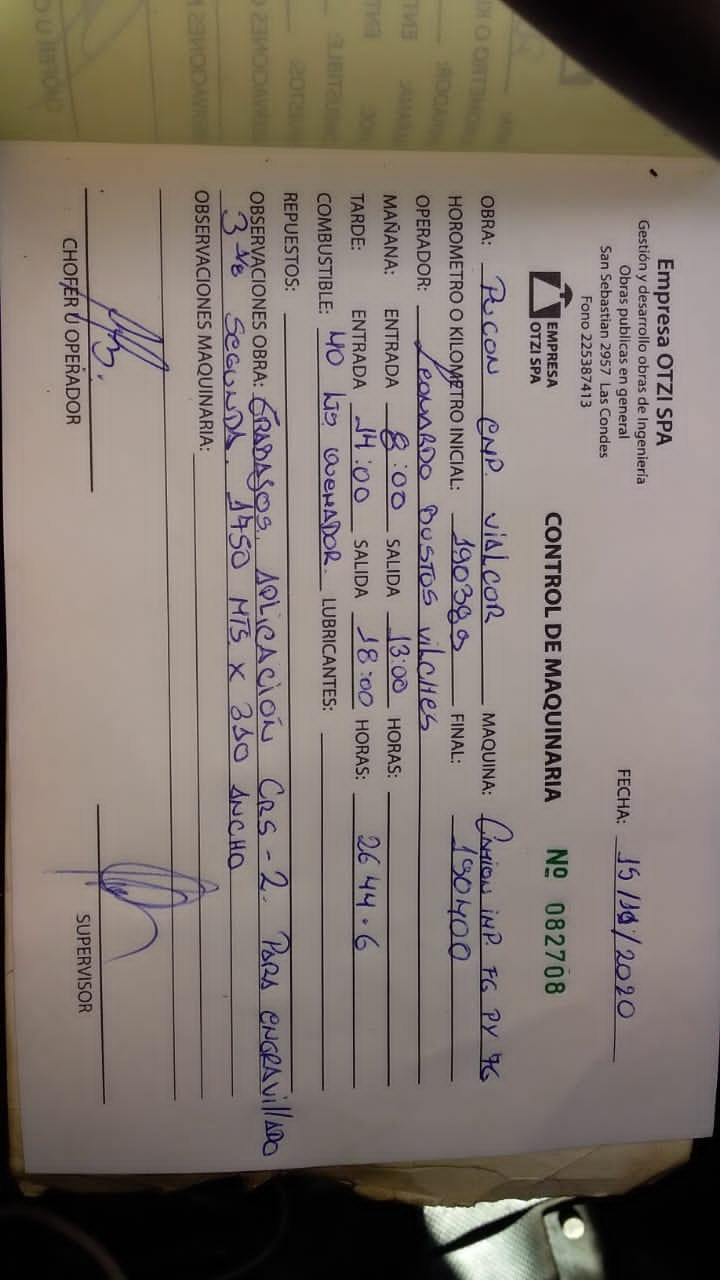 Empresa OTZI SPA
Gestión y desarrollo obras de Ingeniería
Obras publicas en general
San Sebastian 2957 Las Condes
Fono 225387413
FECHA: 15/11/2020
EMPRESA
OTZI SPA
CONTROL DE MAQUINARIA Nº 082708
OBRA: PUCON CMP. VIALCOR MAQUINA: CAMION IMP. FG PY 76
HOROMETRO O KILOMETRO INICIAL: 190389 FINAL: 190400
OPERADOR: LEONARDO BUSTOS VILCHES
MAÑANA: ENTRADA 8:00 SALIDA 13:00 HORAS:
TARDE: ENTRADA 14:00 SALIDA 18:00 HORAS: 2644.6
COMBUSTIBLE: 40 Lts QUEMADOR. LUBRICANTES:
REPUESTOS:
OBSERVACIONES OBRA: APLICACIÓN CRS-2. PARA ENGRAVILLADO
SEGUNDA. 1450 MTS X 310 ANCHO
OBSERVACIONES MAQUINARIA:
CHOFER U OPERADOR
SUPERVISOR